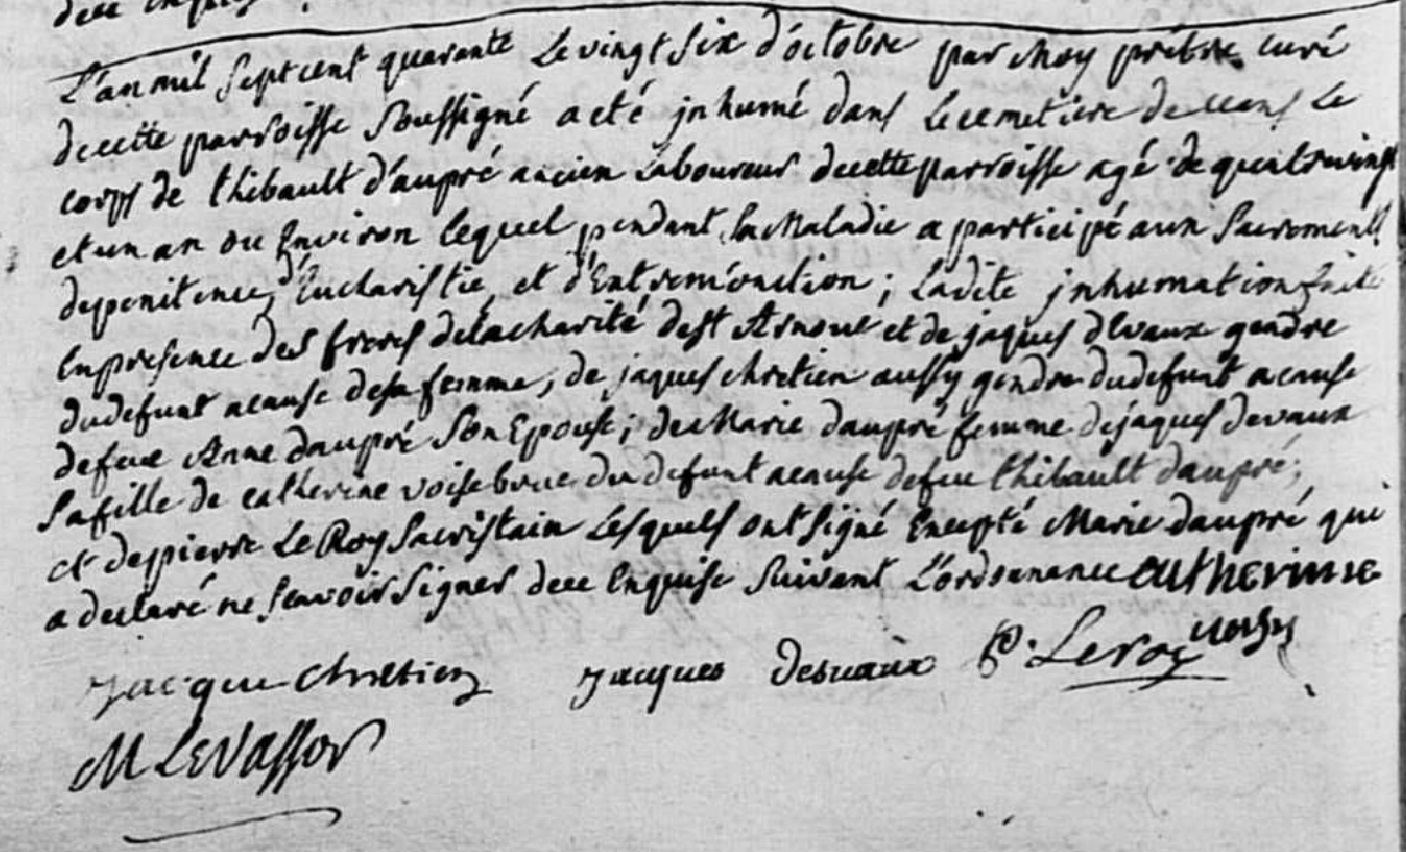 dece enquise
L'an mil sept cent quarante Le vingt six d'octobre par moy prêtre curé
de cette parroisse soussigné a eté jnhumé dans Le cemetiere de ceans Le
corps de thibault d'aupré ancien Laboureur de cette parroisse agé de quatrevingt
et un an ou Environ lequel pendant sa Maladie a participé aux Sacrements
de penitence, d'Eucharistie, et d'Extremonction; Ladite jnhumation faite
En presence des freres de la charité de st Arnoult et de jaques devaux gendre
du defunt a cause de sa femme, de jaques chretien aussy gendre du defunt a cause
de feue Anne daupré Son Epouse; de Marie daupré femme de jaques devaux
sa fille de catherine voisebrue du defunt a cause de feu thibault daupré;
et de pierre Le Roy Sacristain Lesquels ont signé Excepté Marie daupré qui
a declaré ne scavoir signer dece Enquise Suivant L'ordonnance catherinne
Jacque chretien Jacques Desvaux P. Leroy
M LeVassor